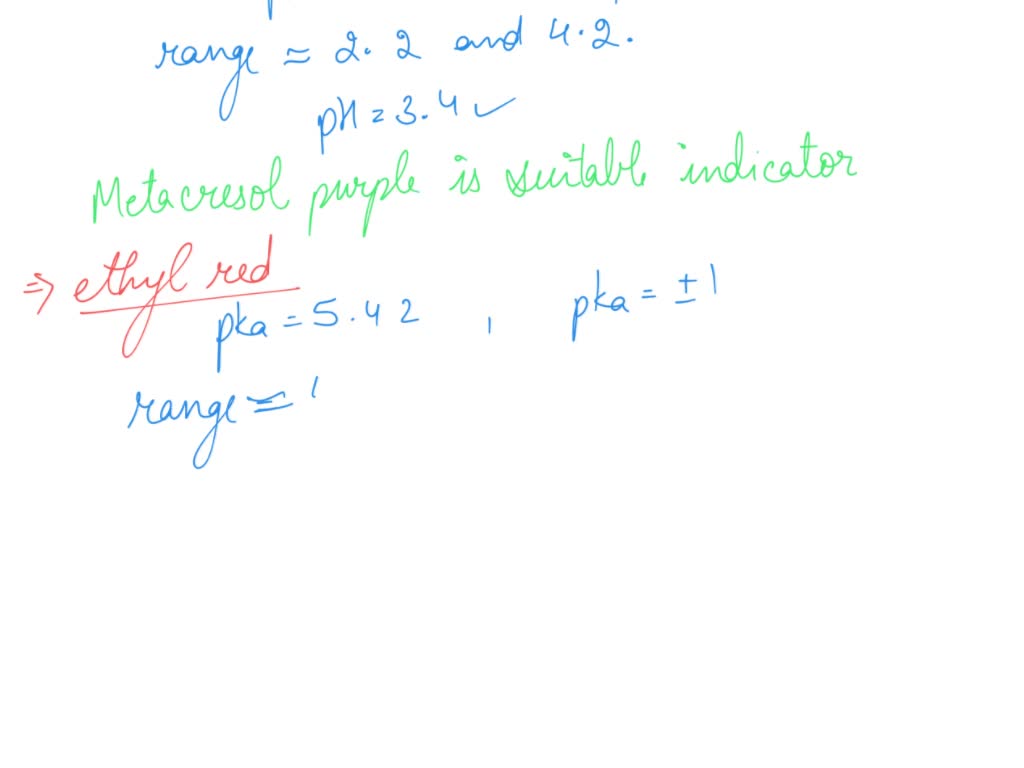 range ≈ 2.2 and 4.2.
pH = 3.4 ✓
Metacresol purple is suitable indicator
⇒ ethyl red
pka = 5.42 , pka = ± 1
range =